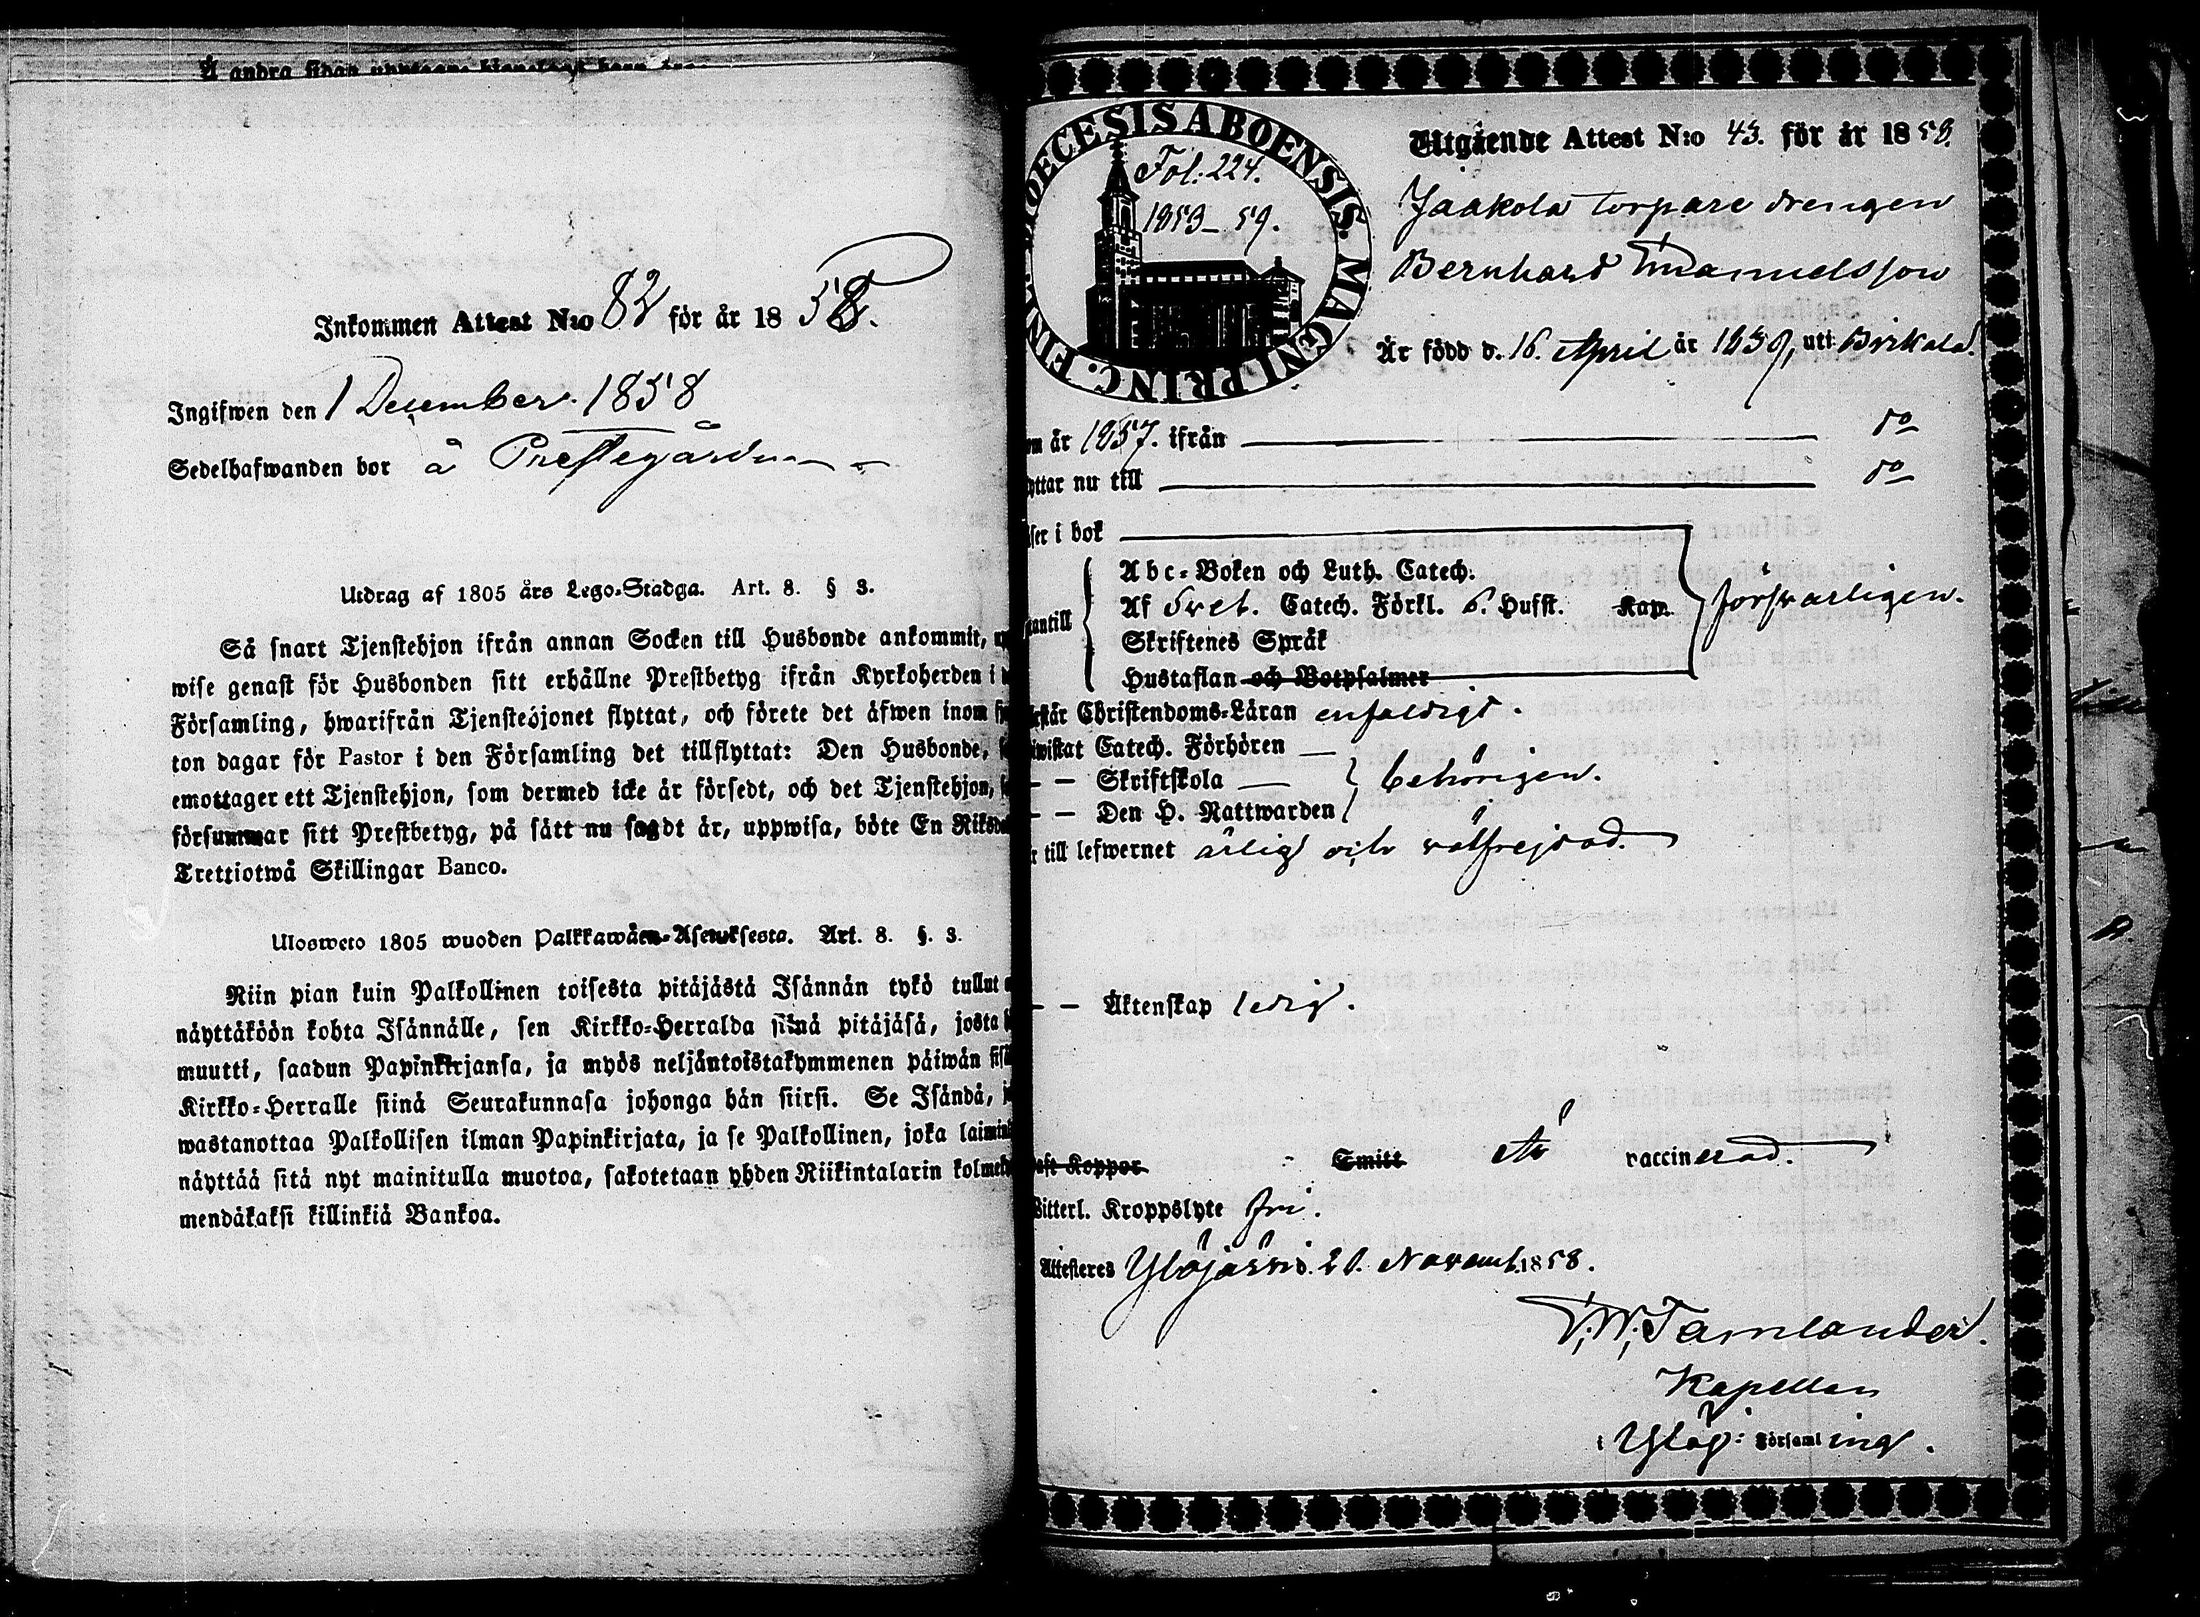 Å andra sidan
Inkommen Attest N:o 82 för år 1858.
Ingifwen den 1 December 1858
Sedelhafwanden bor å Prestegården
Utdrag af 1805 års Lego-Stadga. Art. 8. § 3.
Så snart Tjenstehjon ifrån annan Socken till Husbonde ankommit,
wise genast för Husbonden sitt erhållne Prestbetyg ifrån Kyrkoherden i
Församling, hwarifrån Tjenstehjonet flyttat, och förete det äfwen inom
ton dagar för Pastor i den Församling det tillflyttat: Den Husbonde,
emottager ett Tjenstehjon, som dermed icke är försedt, och det Tjenstehjon,
försummar sitt Prestbetyg, på sätt nu sagdt är, uppwisa, böte En Riksd
Trettiotwå Skillingar Banco.
Ulosweto 1805 wuoden Palkkawäen-Asetuksesta. Art. 8. §. 3.
Niin pian kuin Palkollinen toisesta pitäjästä Isännän tykö tullut
näyttäköön kohta Isännälle, sen Kirkko-Herralda siinä pitäjäsä, josta
muutti, saadun Papinkirjansa, ja myös neljäntoistakymmenen päiwän sis
Kirkko-Herralle siinä Seurakunnasa johonga hän siirsi. Se Isändä,
wastanottaa Palkollisen ilman Papinkirjata, ja se Palkollinen, joka laimin
näyttää sitä nyt mainitulla muotoa, sakotetaan yhden Riikintalarin kolmek
mendäkaksi killinkiä Bankoa.
DIOECESIS ABOENSIS. MAGNI PRINC. FINL.
Fol. 224.
1853–59.
Utgående Attest N:o 43. för år 1858.
Jaakola torpare drengen
Bernhard Emanuelsson
Är född d. 16. April år 1839, uti Birkala.
m år 1857. ifrån do
yttar nu till do
äser i bok
Abc-Boken och Luth. Catech.
Af Svet. Catech. Förkl. 6. Hufst. Kap.
antill försvarligen.
Skriftenes Språk
Hustaflan och Botpsalmer
rstår Christendoms-Läran enfaldigt.
wistat Catech. Förhören —
— — Skriftskola — behörigen.
— — Den H. Nattwarden
r till lefwernet ärlig och välfrejdad.
— — Äktenskap ledig.
aft Koppor Smitt Är vaccinerad.
Witterl. Kroppslyte fri.
Attesteres Ylöjärvi d. 20. Novemb. 1858.
F. W. Tamlander.
Kapellan
i Ylöj: Församling.